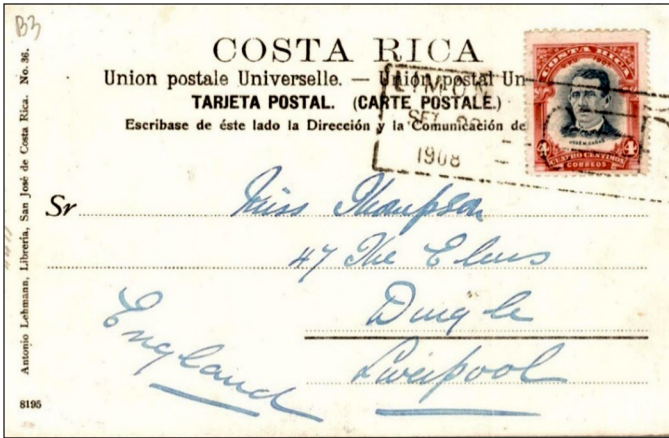 B3
COSTA RICA
Union postale Universelle. — Union postal Un
TARJETA POSTAL. (CARTE POSTALE.)
Escribase de éste lado la Dirección y la Comunicación de
COSTA RICA
JOSÉ M. CAÑAS
4 4
CUATRO CENTIMOS
CORREOS
LIMON
SET
1908
Sr Miss Thompson
47 The Elms
Dingle
Liverpool
England
Antonio Lehmann, Librería, San José de Costa Rica. No. 36.
8195